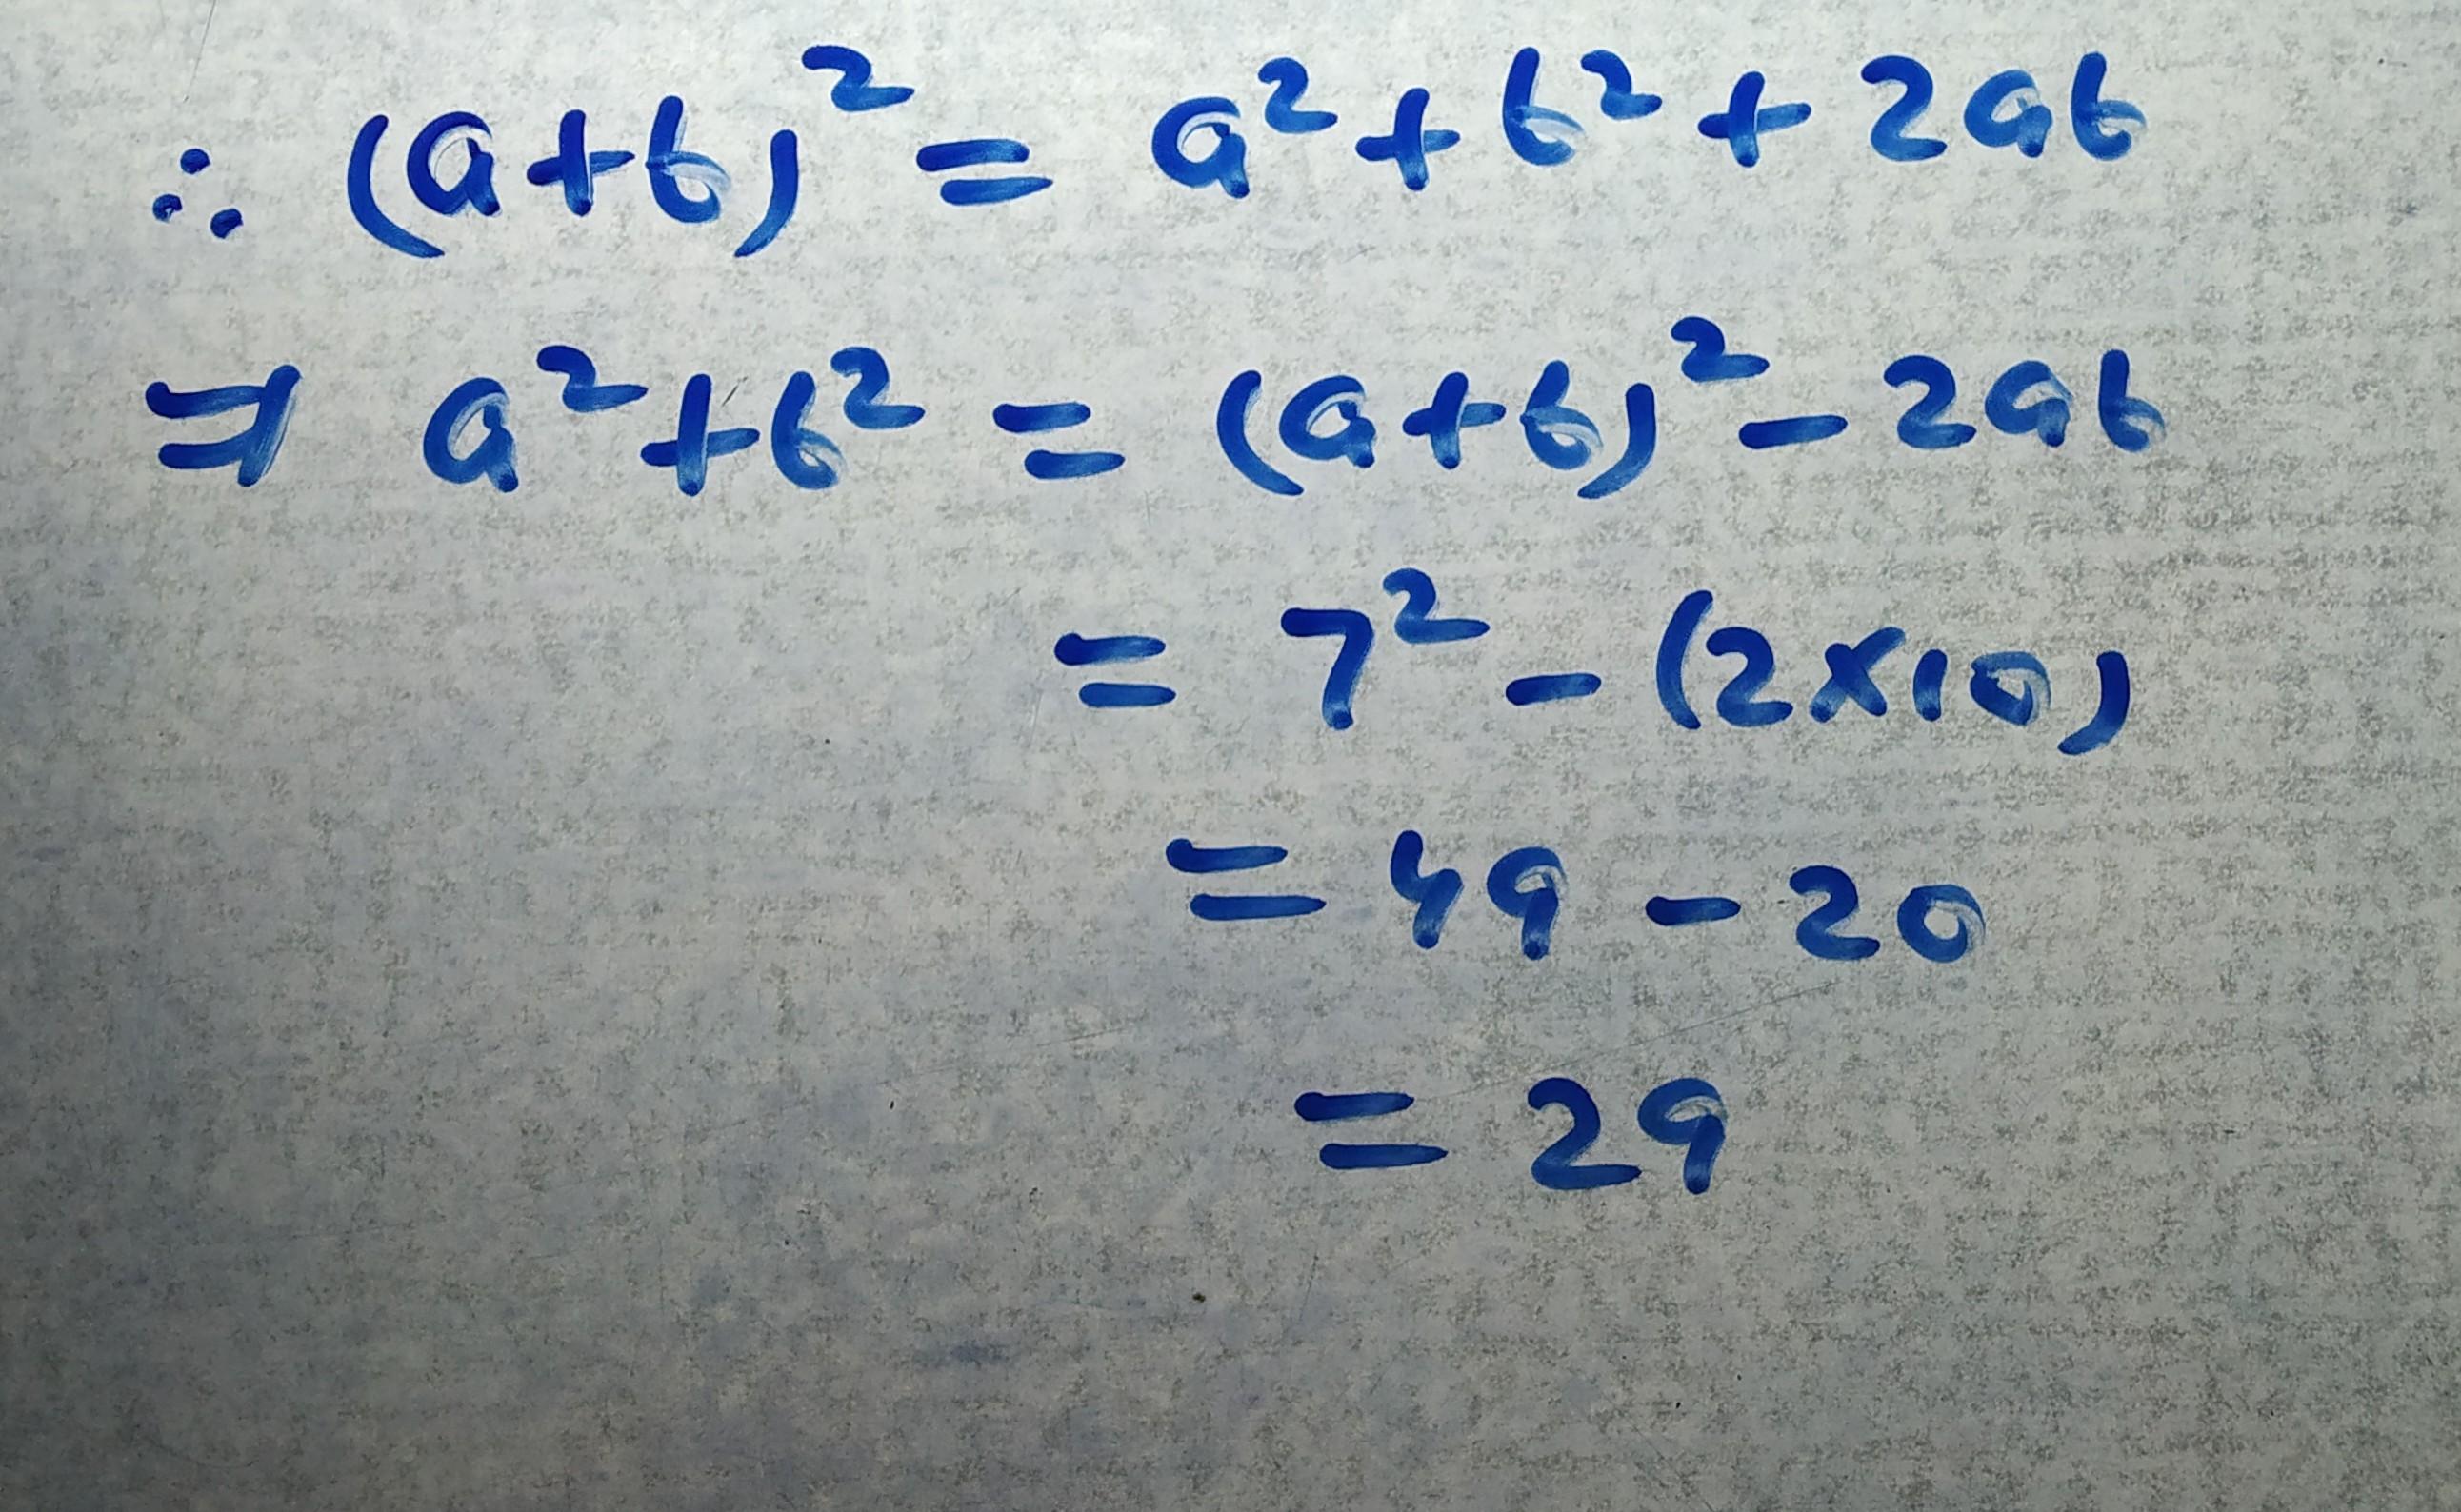 ∴ (a+b)² = a² + b² + 2ab
⇒ a² + b² = (a+b)² - 2ab
= 7² - (2×10)
= 49 - 20
= 29